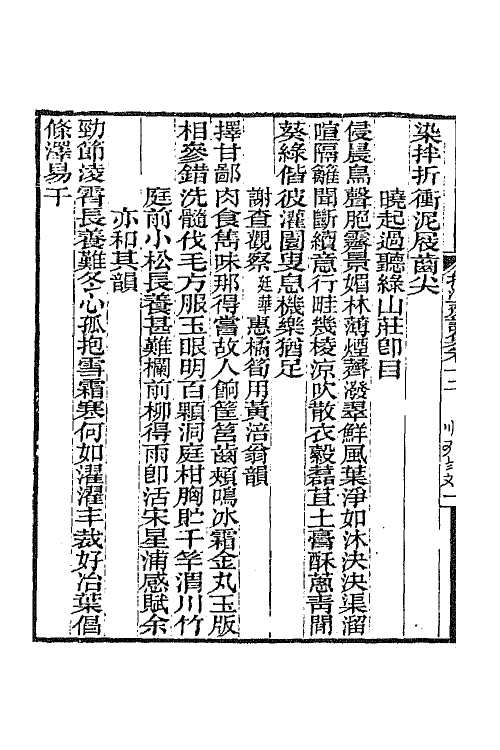 染拌折衝泥屐齒尖
曉起過聽綠山莊卽目
侵晨鳥聲胞霽景媚林薄煙霽潑翠鮮風葉淨如沐決決渠溜
喧隔籬聞斷續意行畦幾棱涼吹散衣縠磊苴土膏酥蔥靑間
葵綠偕彼灌園叟息機樂猶足
謝查觀察廷華惠橘筍用黃涪翁韻
擇甘鄙肉食雋味那得嘗故人餉筐筥齒頰鳴冰霜金丸玉版
相參錯洗髓伐毛方服玉眼明百顆洞庭柑胸貯千竿渭川竹
庭前小松長養甚難欄前柳得雨卽活宋星浦感賦余
亦和其韻
勁節凌霄長養難冬心孤抱雪霜寒何如濯濯丰裁好冶葉倡
條澤易干